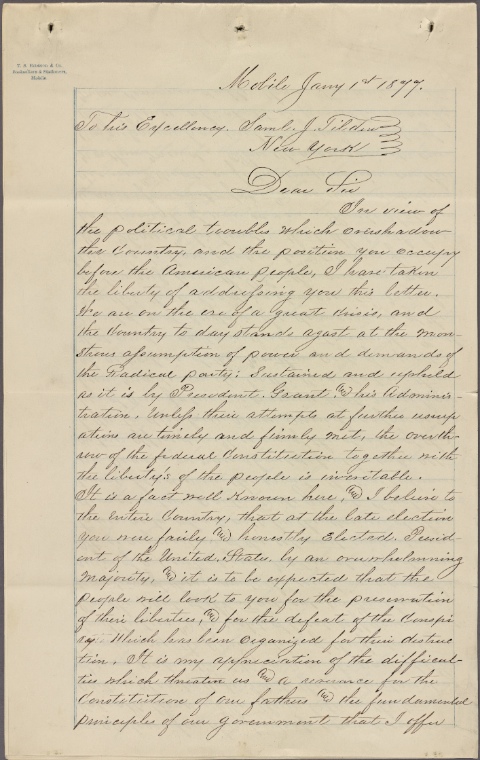 Booksellers & Stationers,
Mobile
Mobile Jany 1st 1877.
To his Excellency. Saml. J. Tilden
New York
Dear Sir
In view of
the political troubles which overshadow
the Country, and the position you occupy
before the American people, I have taken
the liberty of addressing you this letter.
We are on the eve of a great Crisis, and
the Country to day stands agast at the mon-
strous assumption of power and demands of
the Radical party; Sustained and upheld
as it is by President. Grant & his Adminis-
tration. Unless their attempts at further usurp
ations are timely and firmly met, the overth-
row of the federal Constitution together with
the liberty's of the people is inevitable.
It is a fact well Known here, & I believe to
the entire Country, that at the late election
you were fairly & honestly Elected. Presid-
ent of the United. States. by an overwhelmning
Majority, & it is to be expected that the
people will look to you for the preservation
of their liberties, & for the defeat of the Conspi
racy. Which has been Organized for their distruc
tion. It is my appreciation of the difficul-
ties which threaten us & a reverence for the
Constitution of our fathers & the fundamental
principles of our government that I offer